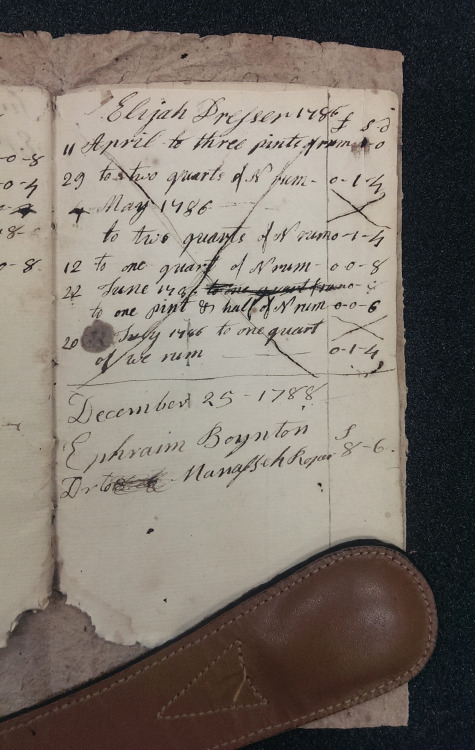 -0-8
0-4
18-0
0-8
Elijah Dresser 1786
£ s d
11 April to three pints of rum 1-0
29 to two quarts of N rum - 0-1-4
4 May 1786
to two quarts of N rum 0-1-4
12 to one quart of N rum - 0 0-8
22 June 1786 to one quart
to one pint & half of N rum 0-0-6
20 July 1786 to one quart
of we rum 0-1-4
December 25 - 1788
Ephraim Boynton
Dr to Manasseh 8-6